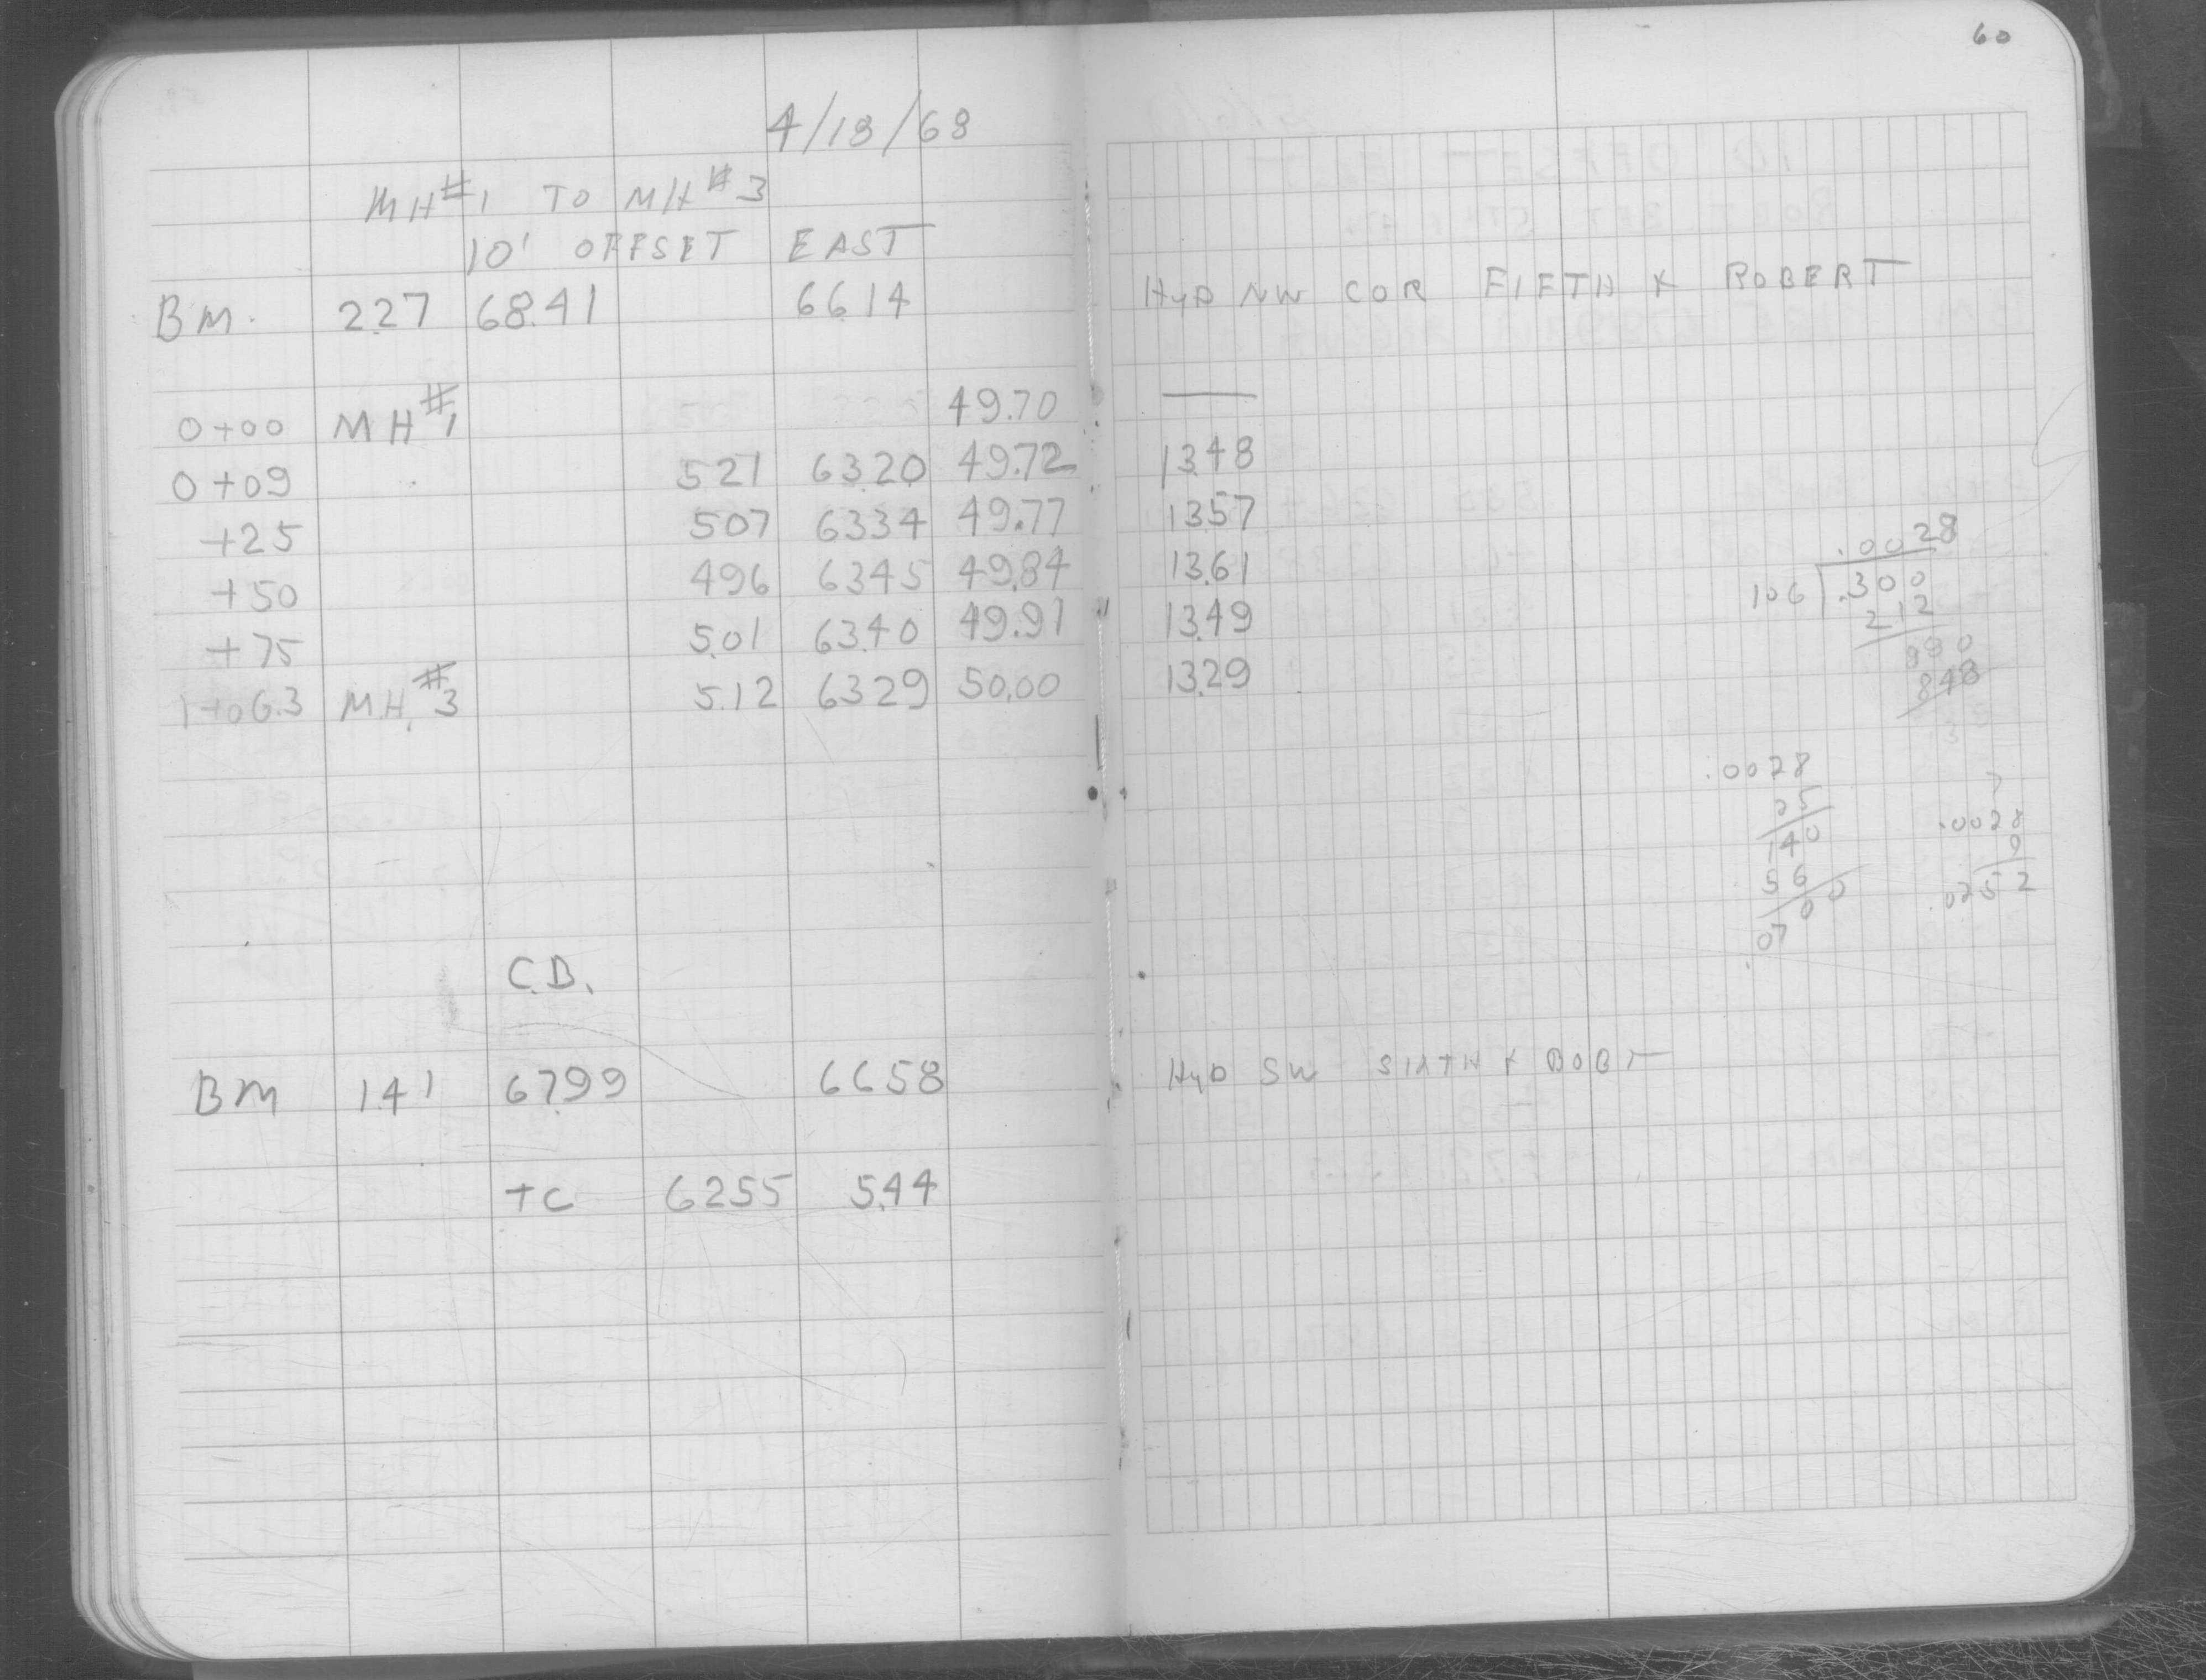 60
4/18/68
MH#1 TO MH#3
10' OFFSET EAST
BM. 2.27 68.41 66.14 HYD NW COR FIFTH & ROBERT
0+00 MH#1 49.70 —
0+09 521 63.20 49.72 13.48
+25 507 6334 49.77 13.57
+50 496 6345 49.84 13.61
+75 5.01 63.40 49.91 13.49
1+06.3 M.H.#3 5.12 6329 50.00 13.29
.0028
106 .300
212
880
848
.0028
25
140
56
0700
.0028
9
.0252
C.B.
BM 1.41 67.99 66.58 HYD SW SIXTH & ROBT
TC 6255 5.44